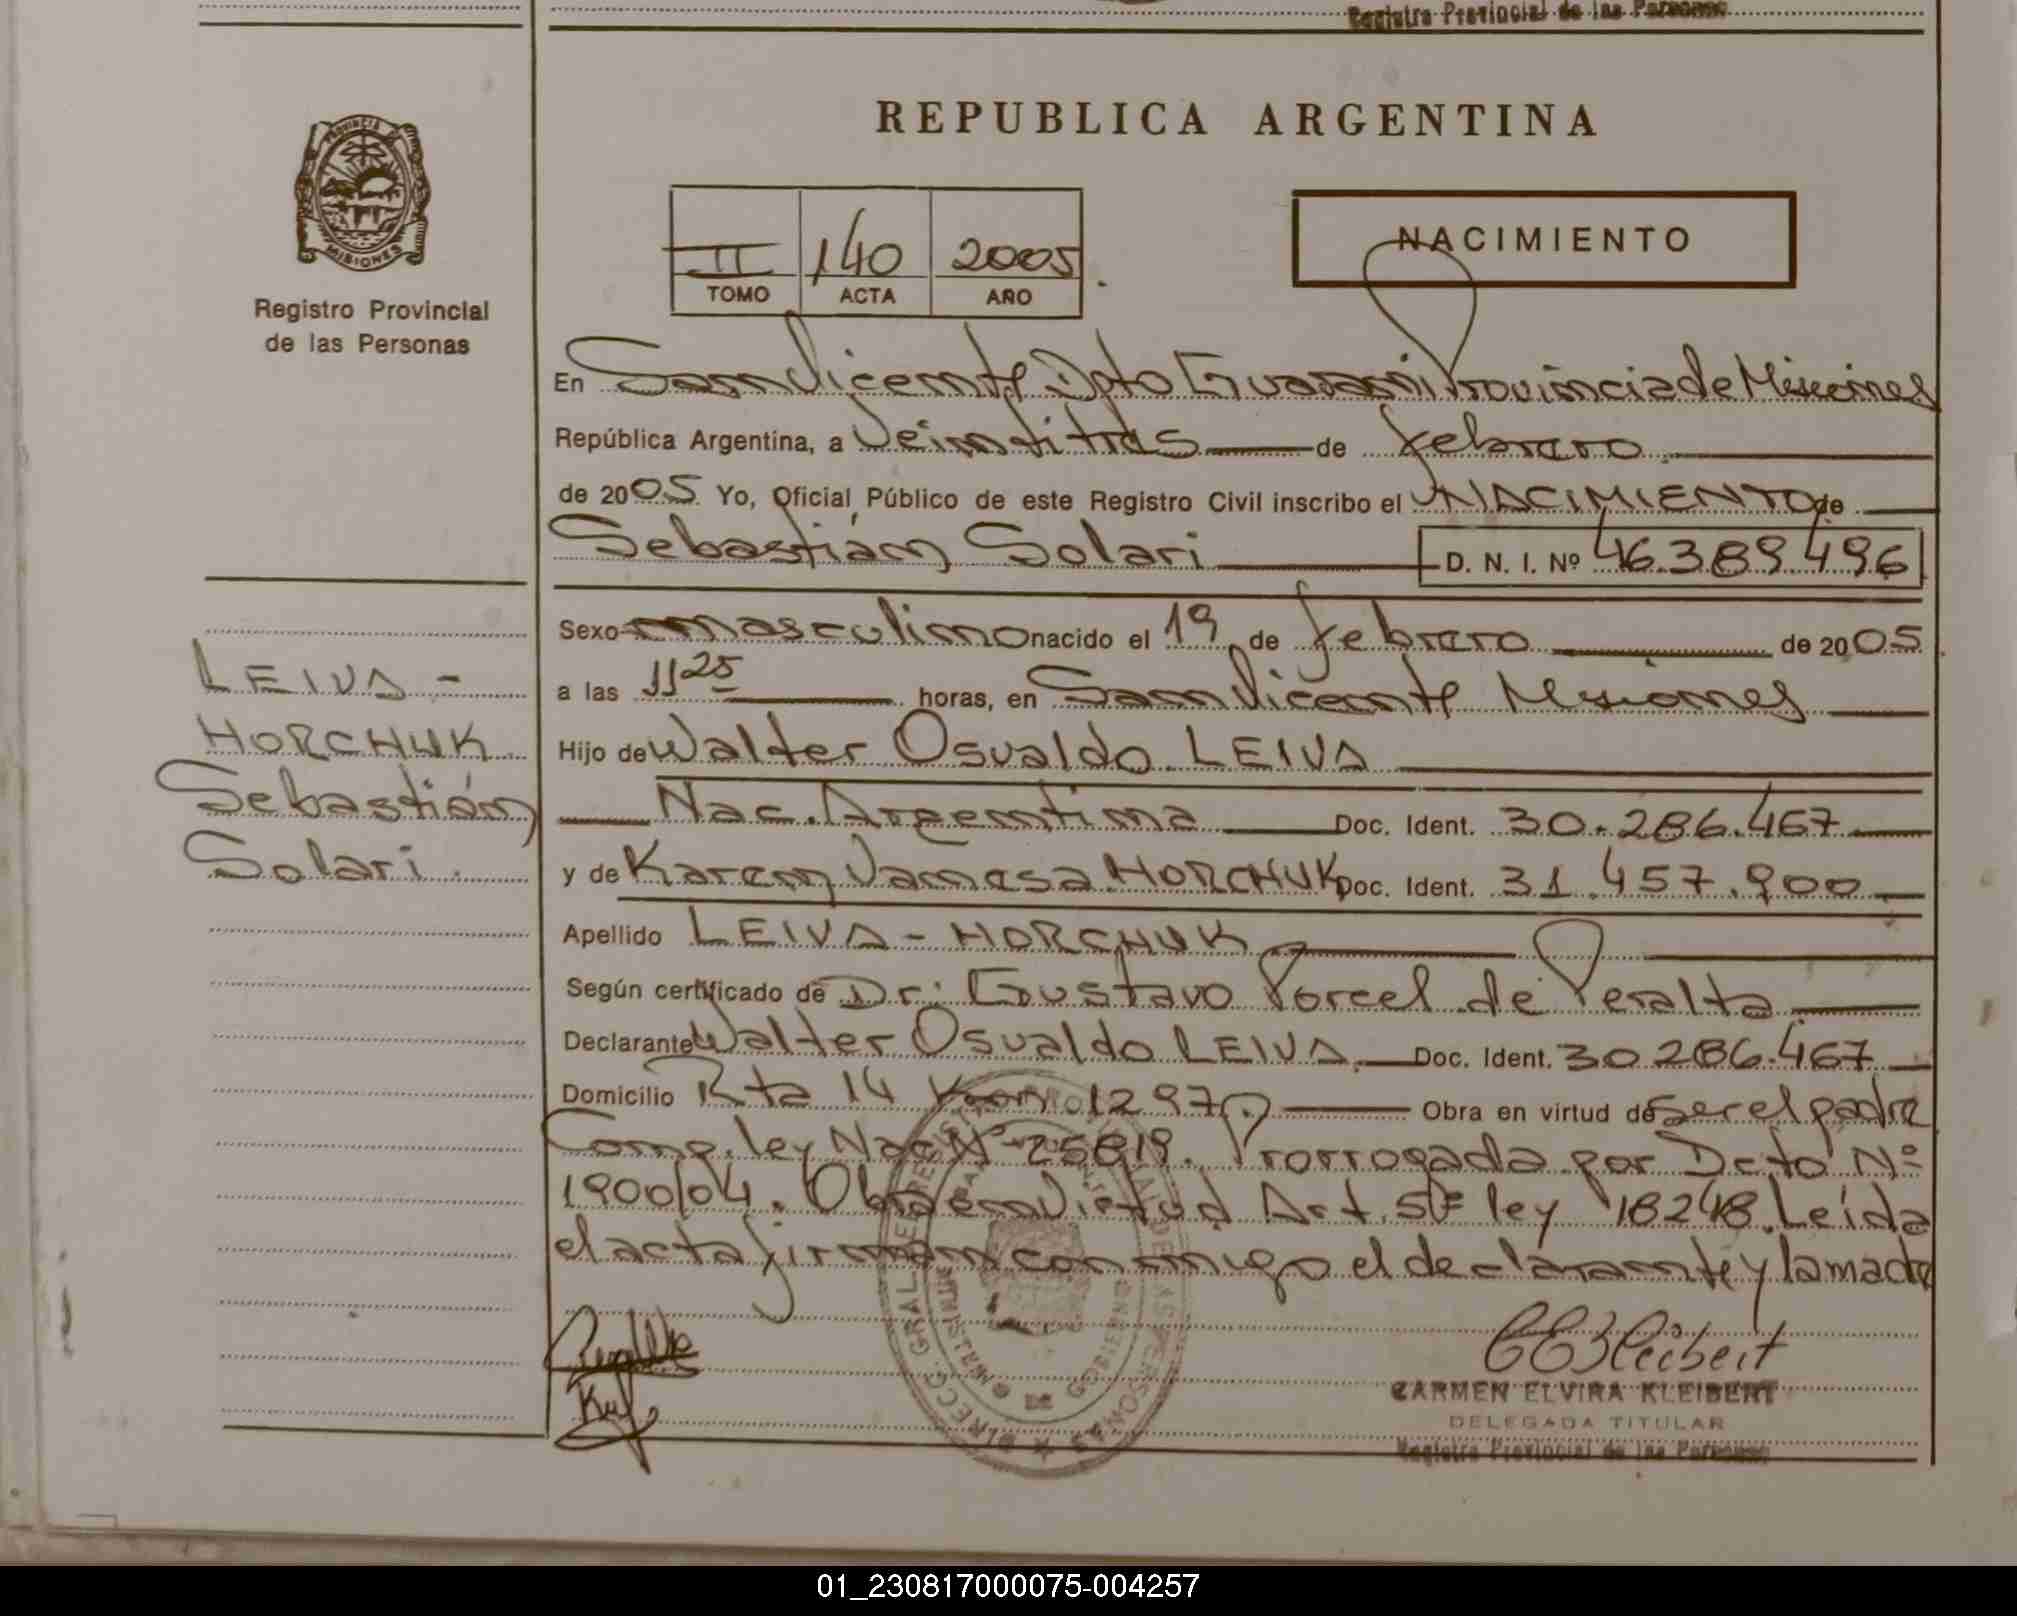 Registro Provincial de las Personas
REPUBLICA ARGENTINA
PROVINCIA DE
MISIONES
Registro Provincial
de las Personas
II 140 2005
TOMO ACTA AÑO
NACIMIENTO
En San Vicente Dpto Guaraní Provincia de Misiones
República Argentina, a Veintitrés de febrero
de 2005 Yo, Oficial Público de este Registro Civil inscribo el NACIMIENTO de
Sebastián Solari D. N. I. Nº 46.389.496
Sexo masculino nacido el 19 de febrero de 2005
a las 11 25 horas, en San Vicente Misiones
Hijo de Walter Osvaldo LEIVA
Nac. Argentina Doc. Ident. 30.286.467
y de Karen Vanesa HORCHUK Doc. Ident. 31.457.900
Apellido LEIVA - HORCHUK
Según certificado de Dr. Gustavo Porcel de Peralta
Declarante Walter Osvaldo LEIVA Doc. Ident. 30.286.467
Domicilio Rta 14 Km 1297 Obra en virtud de Ser el padre
Comp. ley Nac Nº 25819. Prorrogada por Dcto Nº
1900/04. Obra en Virtud Art. 5º ley 18248. Leída
el acta firman conmigo el declarante y la madre
LEIVA -
HORCHUK
Sebastián
Solari.
CARMEN ELVIRA KLEIBERT
DELEGADA TITULAR
Registro Provincial de las Personas
01_230817000075-004257